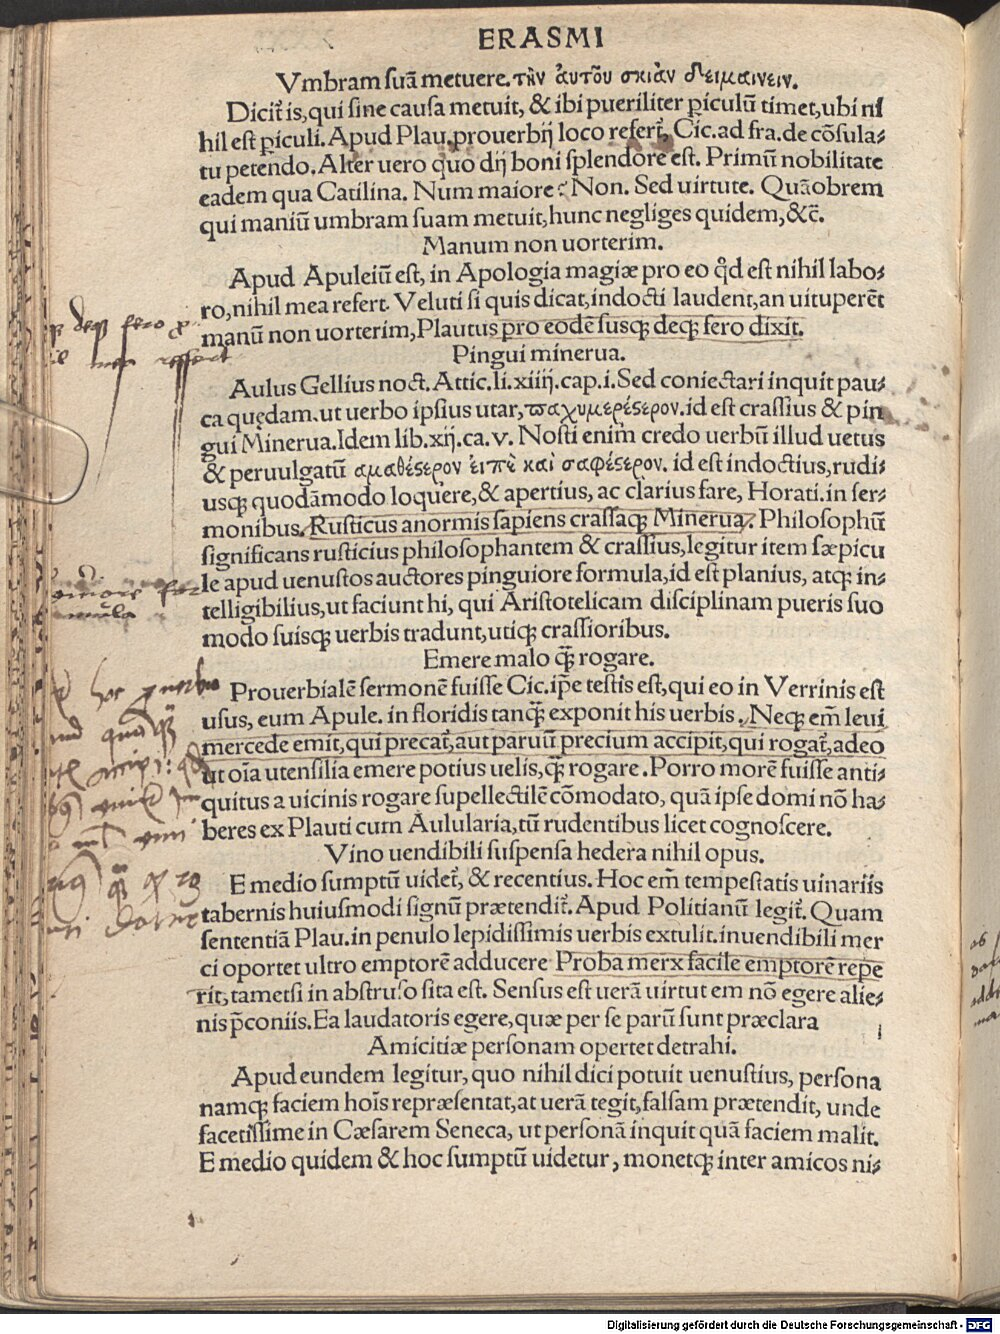 ERASMI
Vmbram suā metuere. τὴν ἁυτοῦ σκιὰν δειμαινειν.
Dicit̄ is, qui sine causa metuit, & ibi pueriliter piculū timet, ubi ni
hil est piculi. Apud Plau. prouerbij loco refert̄, Cic. ad fra. de cōsula-
tu petendo. Alter uero quo dij boni splendore est. Primū nobilitate
eadem qua Catilina. Num maiore? Non. Sed uirtute. Quāobrem
qui maniū umbram suam metuit, hunc negliges quidem, &c̄.
Manum non uorterim.
Apud Apuleiū est, in Apologia magiæ pro eo qd̄ est nihil labo-
ro, nihil mea refert. Veluti si quis dicat, indocti laudent, an uituperēt
manū non uorterim, Plautus pro eodē susq; deq; fero dixit.
Pingui minerua.
Aulus Gellius noct. Attic. li. xiiij. cap. i. Sed coniectari inquit pau-
ca quędam. ut uerbo ipsius utar, παχυμερέςερον. id est crassius & pin
gui Minerua. Idem lib. xij. ca. v. Nosti enim̄ credo uerbū illud uetus
& peruulgatū αμαθέςερον ἐιπὲ καὶ σαφέςερον. id est indoctius, rudi-
usq; quodāmodo loquere, & apertius, ac clarius fare, Horati. in ser-
monibus. Rusticus anormis sapiens crassaq; Minerua. Philosophū
significans rusticius philosophantem & crassius, legitur item sæpicu
le apud uenustos auctores pinguiore formula, id est planius, atq; in-
telligibilius, ut faciunt hi, qui Aristotelicam disciplinam pueris suo
modo suisq; uerbis tradunt, utiq; crassioribus.
Emere malo q̄ rogare.
Prouerbialē sermonē fuisse Cic. ip̄e testis est, qui eo in Verrinis est
usus, eum Apule. in floridis tanq̄ exponit his uerbis. Neq; em̄ leui
mercede emit, qui precat̄, aut paruū precium accipit, qui rogat̄, adeo
ut oīa utensilia emere potius uelis, q̄ rogare. Porro morē fuisse anti-
quitus a uicinis rogare supellectilē cōmodato, quā ipse domi nō ha-
beres ex Plauti cum Aulularia, tū rudentibus licet cognoscere.
Vino uendibili suspensa hedera nihil opus.
E medio sumptū uidet̄, & recentius. Hoc em̄ tempestatis uinariis
tabernis huiusmodi signū prætendit̄. Apud Politianū legit̄. Quam
sententiā Plau. in penulo lepidissimis uerbis extulit. inuendibili mer
ci oportet ultro emptorē adducere Proba merx facile emptorē repe
rit, tametsi in abstruso sita est. Sensus est uerā uirtutem nō egere alie-
nis p̄coniis. Ea laudatoris egere, quæ per se parū sunt præclara
Amicitiæ personam opertet detrahi.
Apud eundem legitur, quo nihil dici potuit uenustius, persona
namq; faciem hoīs repræsentat, at uerā tegit, falsam prætendit, unde
facetissime in Cæsarem Seneca, ut personā inquit quā faciem malit.
E medio quidem & hoc sumptū uidetur, monetq; inter amicos ni-
Digitalisierung gefördert durch die Deutsche Forschungsgemeinschaft - DFG